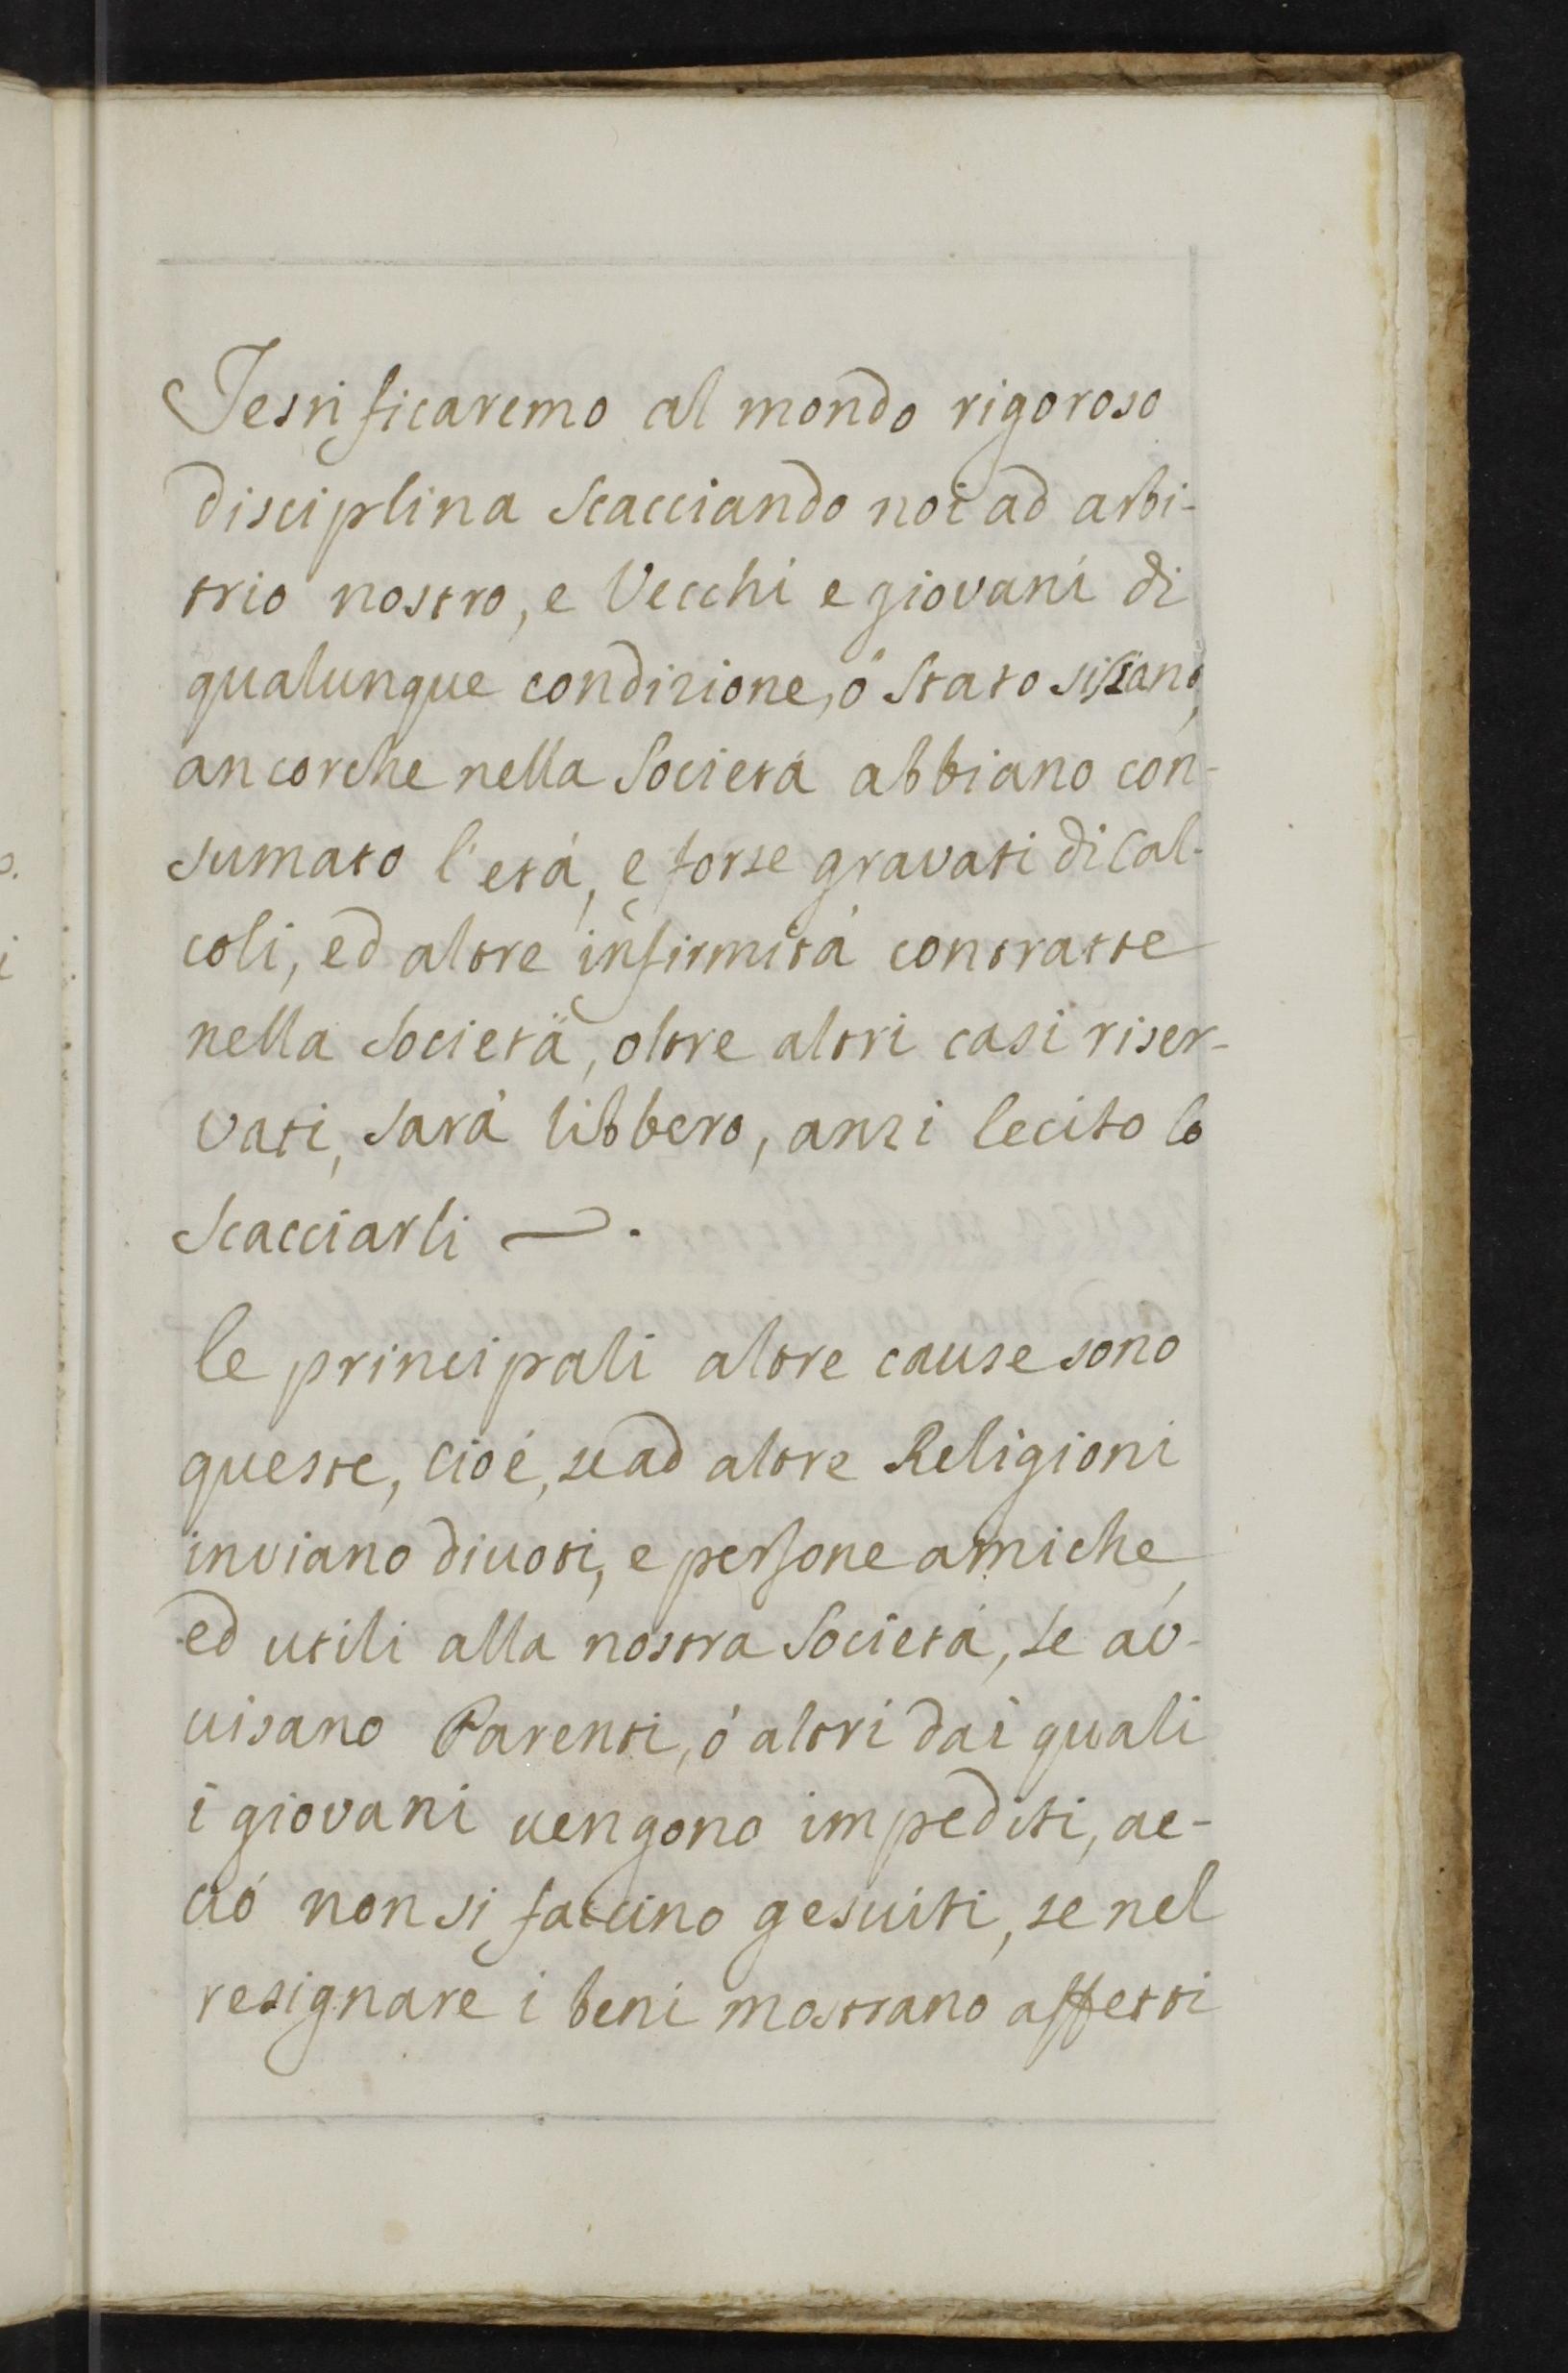 Testificaremo al mondo rigoroso
disciplina scacciando noi ad arbi-
trio nostro, e Vecchi e giovani di
qualunque condizione, ó Stato sisiano,
ancorche nella Societá abbiano con-
sumato l'etá, e forse gravati di Cal-
coli, ed altre infirmitá contratte
nella Societá, oltre altri casi riser-
vati, sará libbero, anzi lecito lo
Scacciarli —.
le principali altre cause sono
queste, cioé, se ad altre Religioni
inviano divoti, e persone amiche,
ed utili alla nostra Societá, se av-
uisano Parenti, ó altri dai quali
i giovani uengono impediti, ac-
ció non si faccino gesuiti, se nel
resignare i beni mostrano affetti